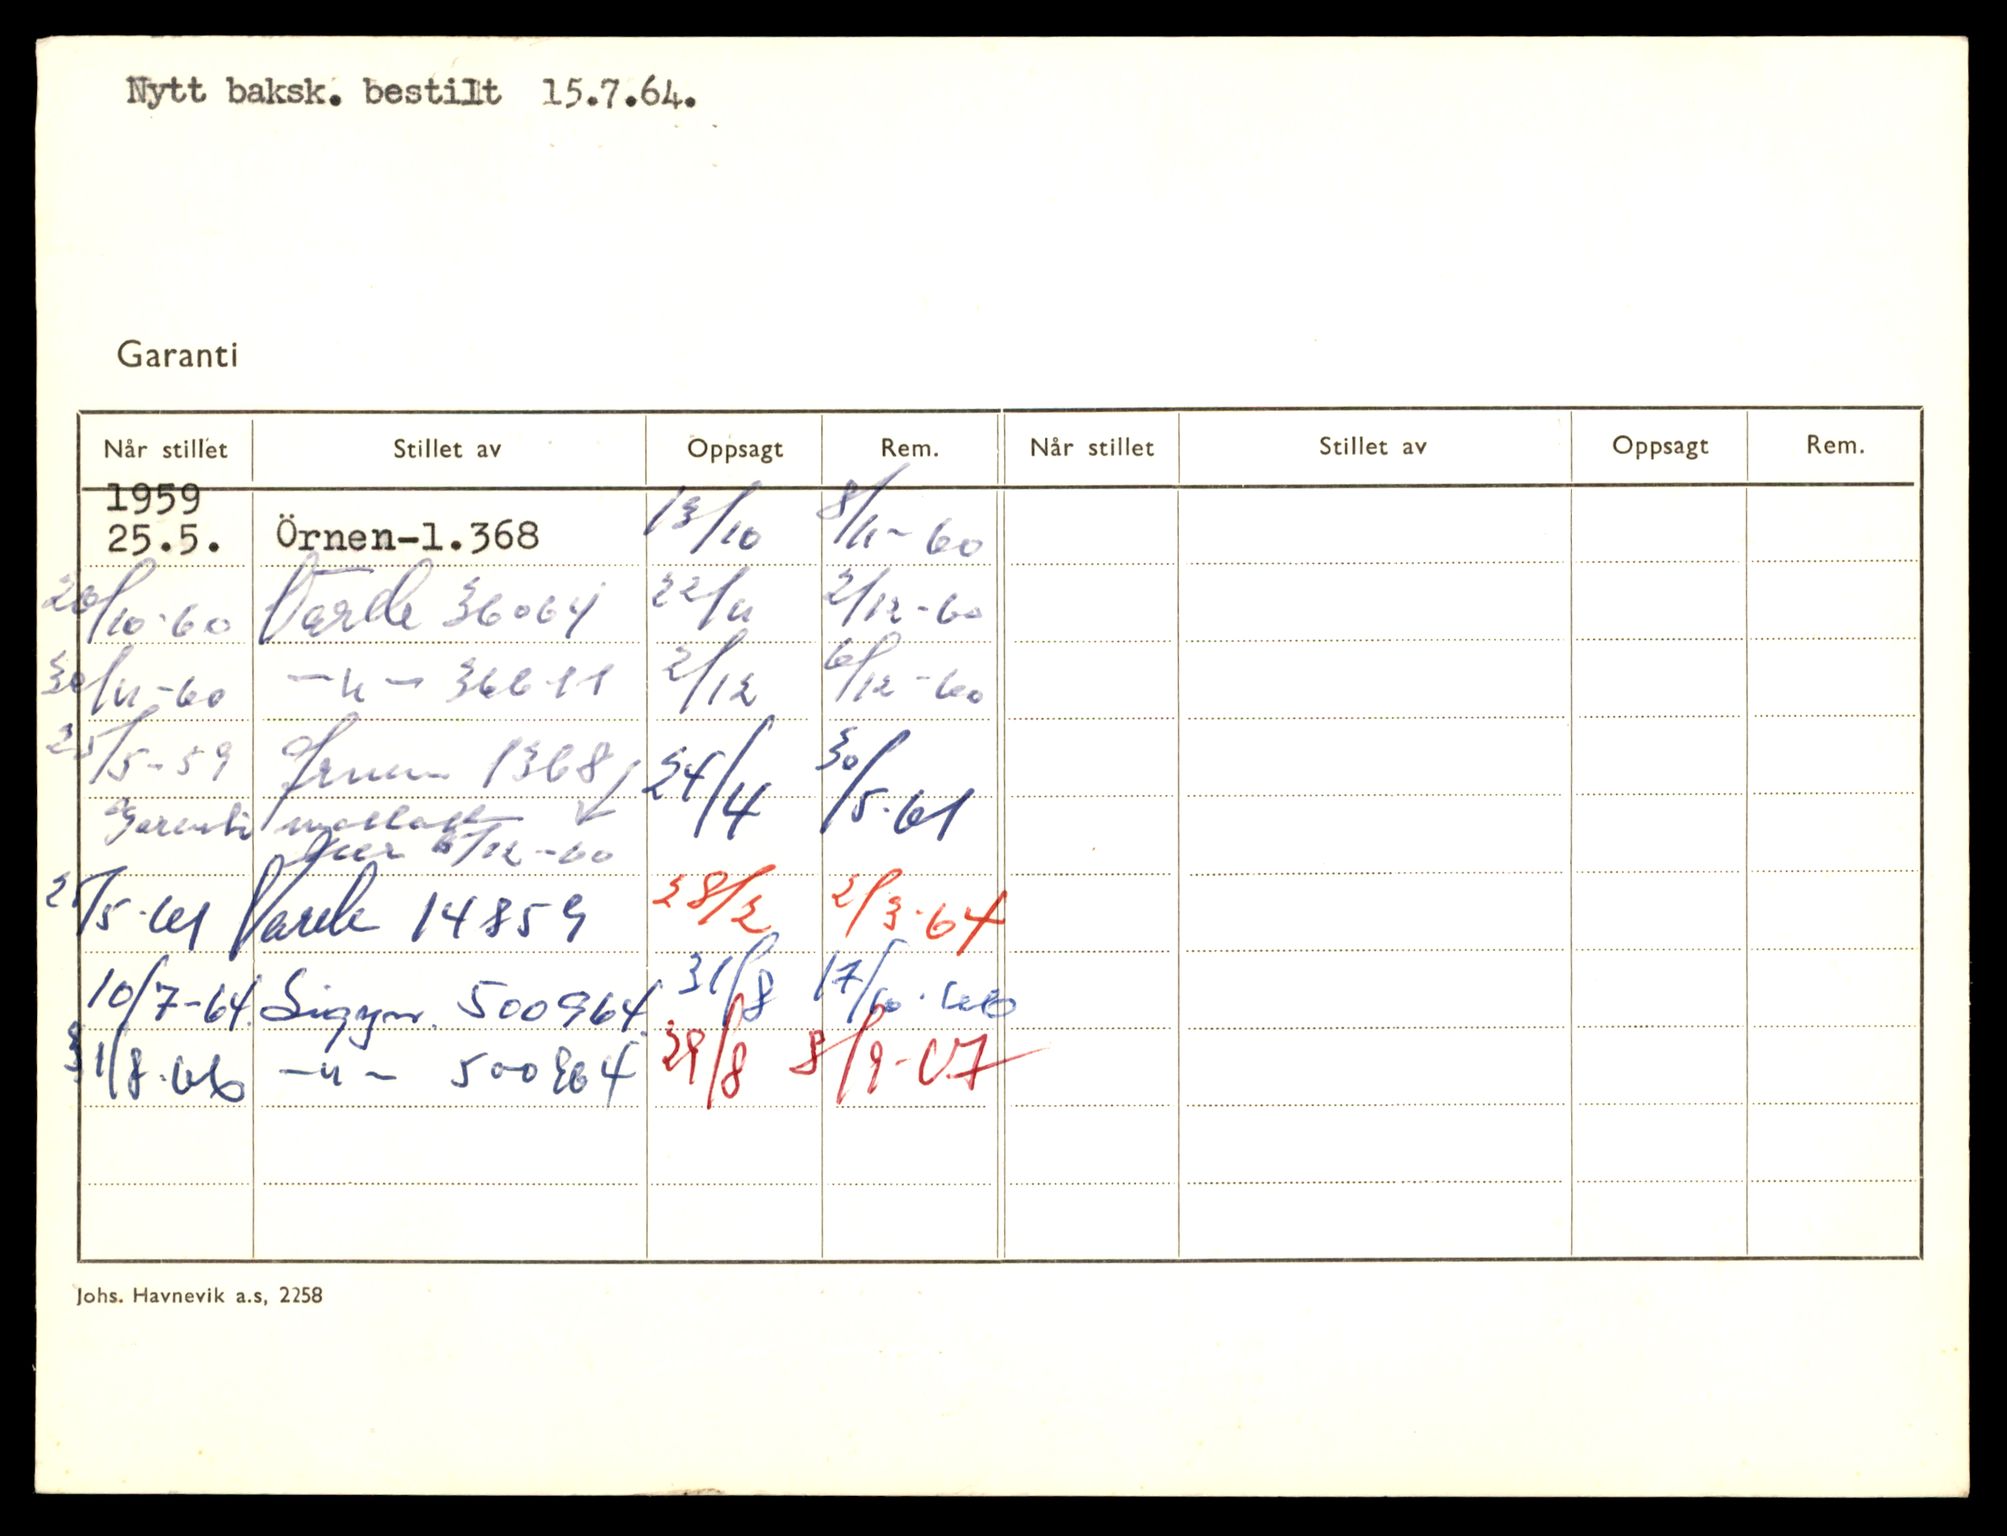 Nytt baksk. bestilt 15.7.64.
Garanti
Når stillet Stillet av Oppsagt Rem. Når stillet Stillet av Oppsagt Rem.
1959
25.5. Örnen-1.368 13/10 8/11-60
20/10-60 Varde 36064 22/11 2/12-60
30/11-60 -"- 36611 2/12 6/12-60
25/5-59 Ørnen 1368 24/4 30/5-61
Garanti mottatt
her 6/12-60
25/5-61 Varde 14859 28/2 2/3-64
10/7-64. Sigyn. 500964. 31/8 17/10-66
31/8-66 -"- 500964 29/8 8/9-67
Johs. Havnevik a.s, 2258